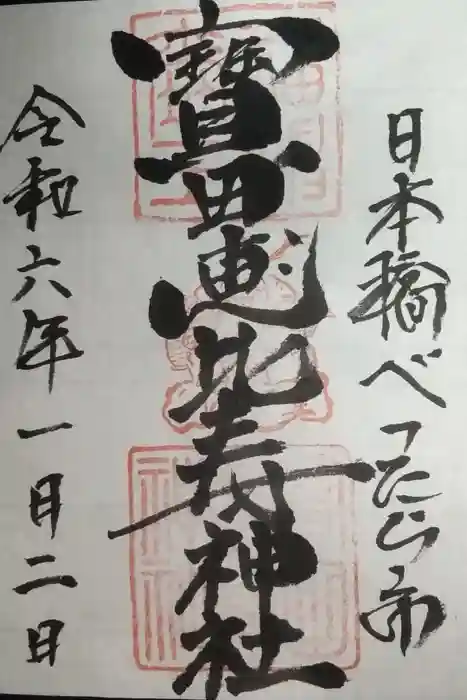 日本橋べったら市
寶田恵比寿神社
令和六年一月二日